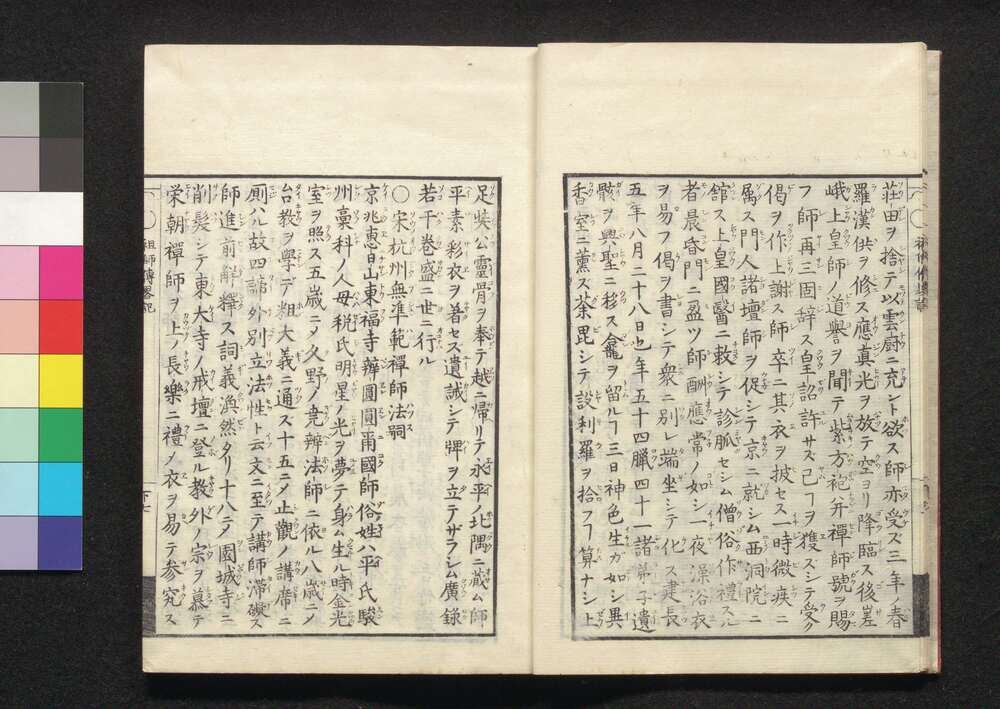 荘田ヲ捨テ以雲厨ニ充ント欲ス師亦受ズ三年ノ春
羅漢供ヲ修ス應真光ヲ放テ空ヨリ降臨ス後嵯
峨上皇師ノ道譽ヲ聞テ紫方袍并禪師號ヲ賜
フ師再三固辞ス皇詔許サズ已ヿヲ獲ズシテ受ク
偈ヲ作上謝ス師卒ニ其衣ヲ披セス一時微疾ニ
属ス門人諸壇師ヲ促シテ京ニ就シム西洞院ニ
舘ス上皇國醫ニ敕シテ診脈セシム僧俗作禮スル
者晨昏門ニ盈ツ師酬應常ノ如シ一夜澡浴衣
ヲ易フ偈ヲ書シテ衆ニ別レ端坐シテ化ス建長
五年八月二十八日也年五十四臘四十一諸弟子遺
骸ヲ興聖ニ移ス龕ヲ留ルヿ三日神色生ガ如シ異
香室ニ薫ス荼毘シテ設利羅ヲ拾フヿ算ナシト
足奘公靈骨ヲ奉テ越ニ帰リテ永平ノ北隅ニ蔵ム師
平素彩衣ヲ著セス遺誡シテ牌ヲ立テザラシム廣錄
若干巻盛ニ世ニ行ル
○宋杭州無準範禪師法嗣
京兆惠日山東福寺辨圓圓甭國師俗姓ハ平氏駿
州藁科ノ人母税氏明星ノ光ヲ夢テ身ム生ル時金光
室ヲ照ス五歳ニメ久野ノ尭辨法師ニ依ル八歳ニメ
台教ヲ學デ粗大義ニ通ス十五ニメ止觀ノ講席ニ
廁ハル故四諦外別立法性ト云文ニ至テ講師滯礙ス
師進前辭釋ス詞義渙然タリ十八ニメ園城寺ニ
削髮シテ東大寺ノ戒壇ニ登ル教外ノ宗ヲ慕テ
栄朝禪師ヲ上ノ長樂ニ禮ノ衣ヲ易テ参究ス